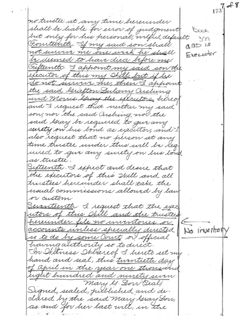 7 of 8
173
no trustee at any time hereunder
shall be liable for error of judgment
but only for his personal wilful default
Fourteenth If my said son shall
not survive me one week he shall
be deemed to have died before me
Fifteenth I appoint my said son the
executor of this my Will but if he
do not survive me then I appoint
the said Grafton Cushing
and Moses Gray the executors hereof
and I request that neither my said
son, nor the said Cushing nor the
said Gray be required to give any
surety on his bond as executor, and I
also request that no person at any
time trustee under this will be req
uired to give any surety on his bond
as trustee
Sixteenth I expect and desire that
the executors of this Will and all
trustees hereunder shall ask the
usual commissions allowed by law
or custom
Seventeenth I request that the exe
cutors of this Will and the trustees
hereunder file no inventories or
accounts unless specially directed
so to do by some Court or official
having authority so to direct
In Witness Whereof I hereto set my
hand and seal this twentieth day
of April in the year one thousand
eight hundred and ninety nine
Mary
Signed, sealed, published and de
clared by the said Mary
as and for her last will in the
Executor
No inventory